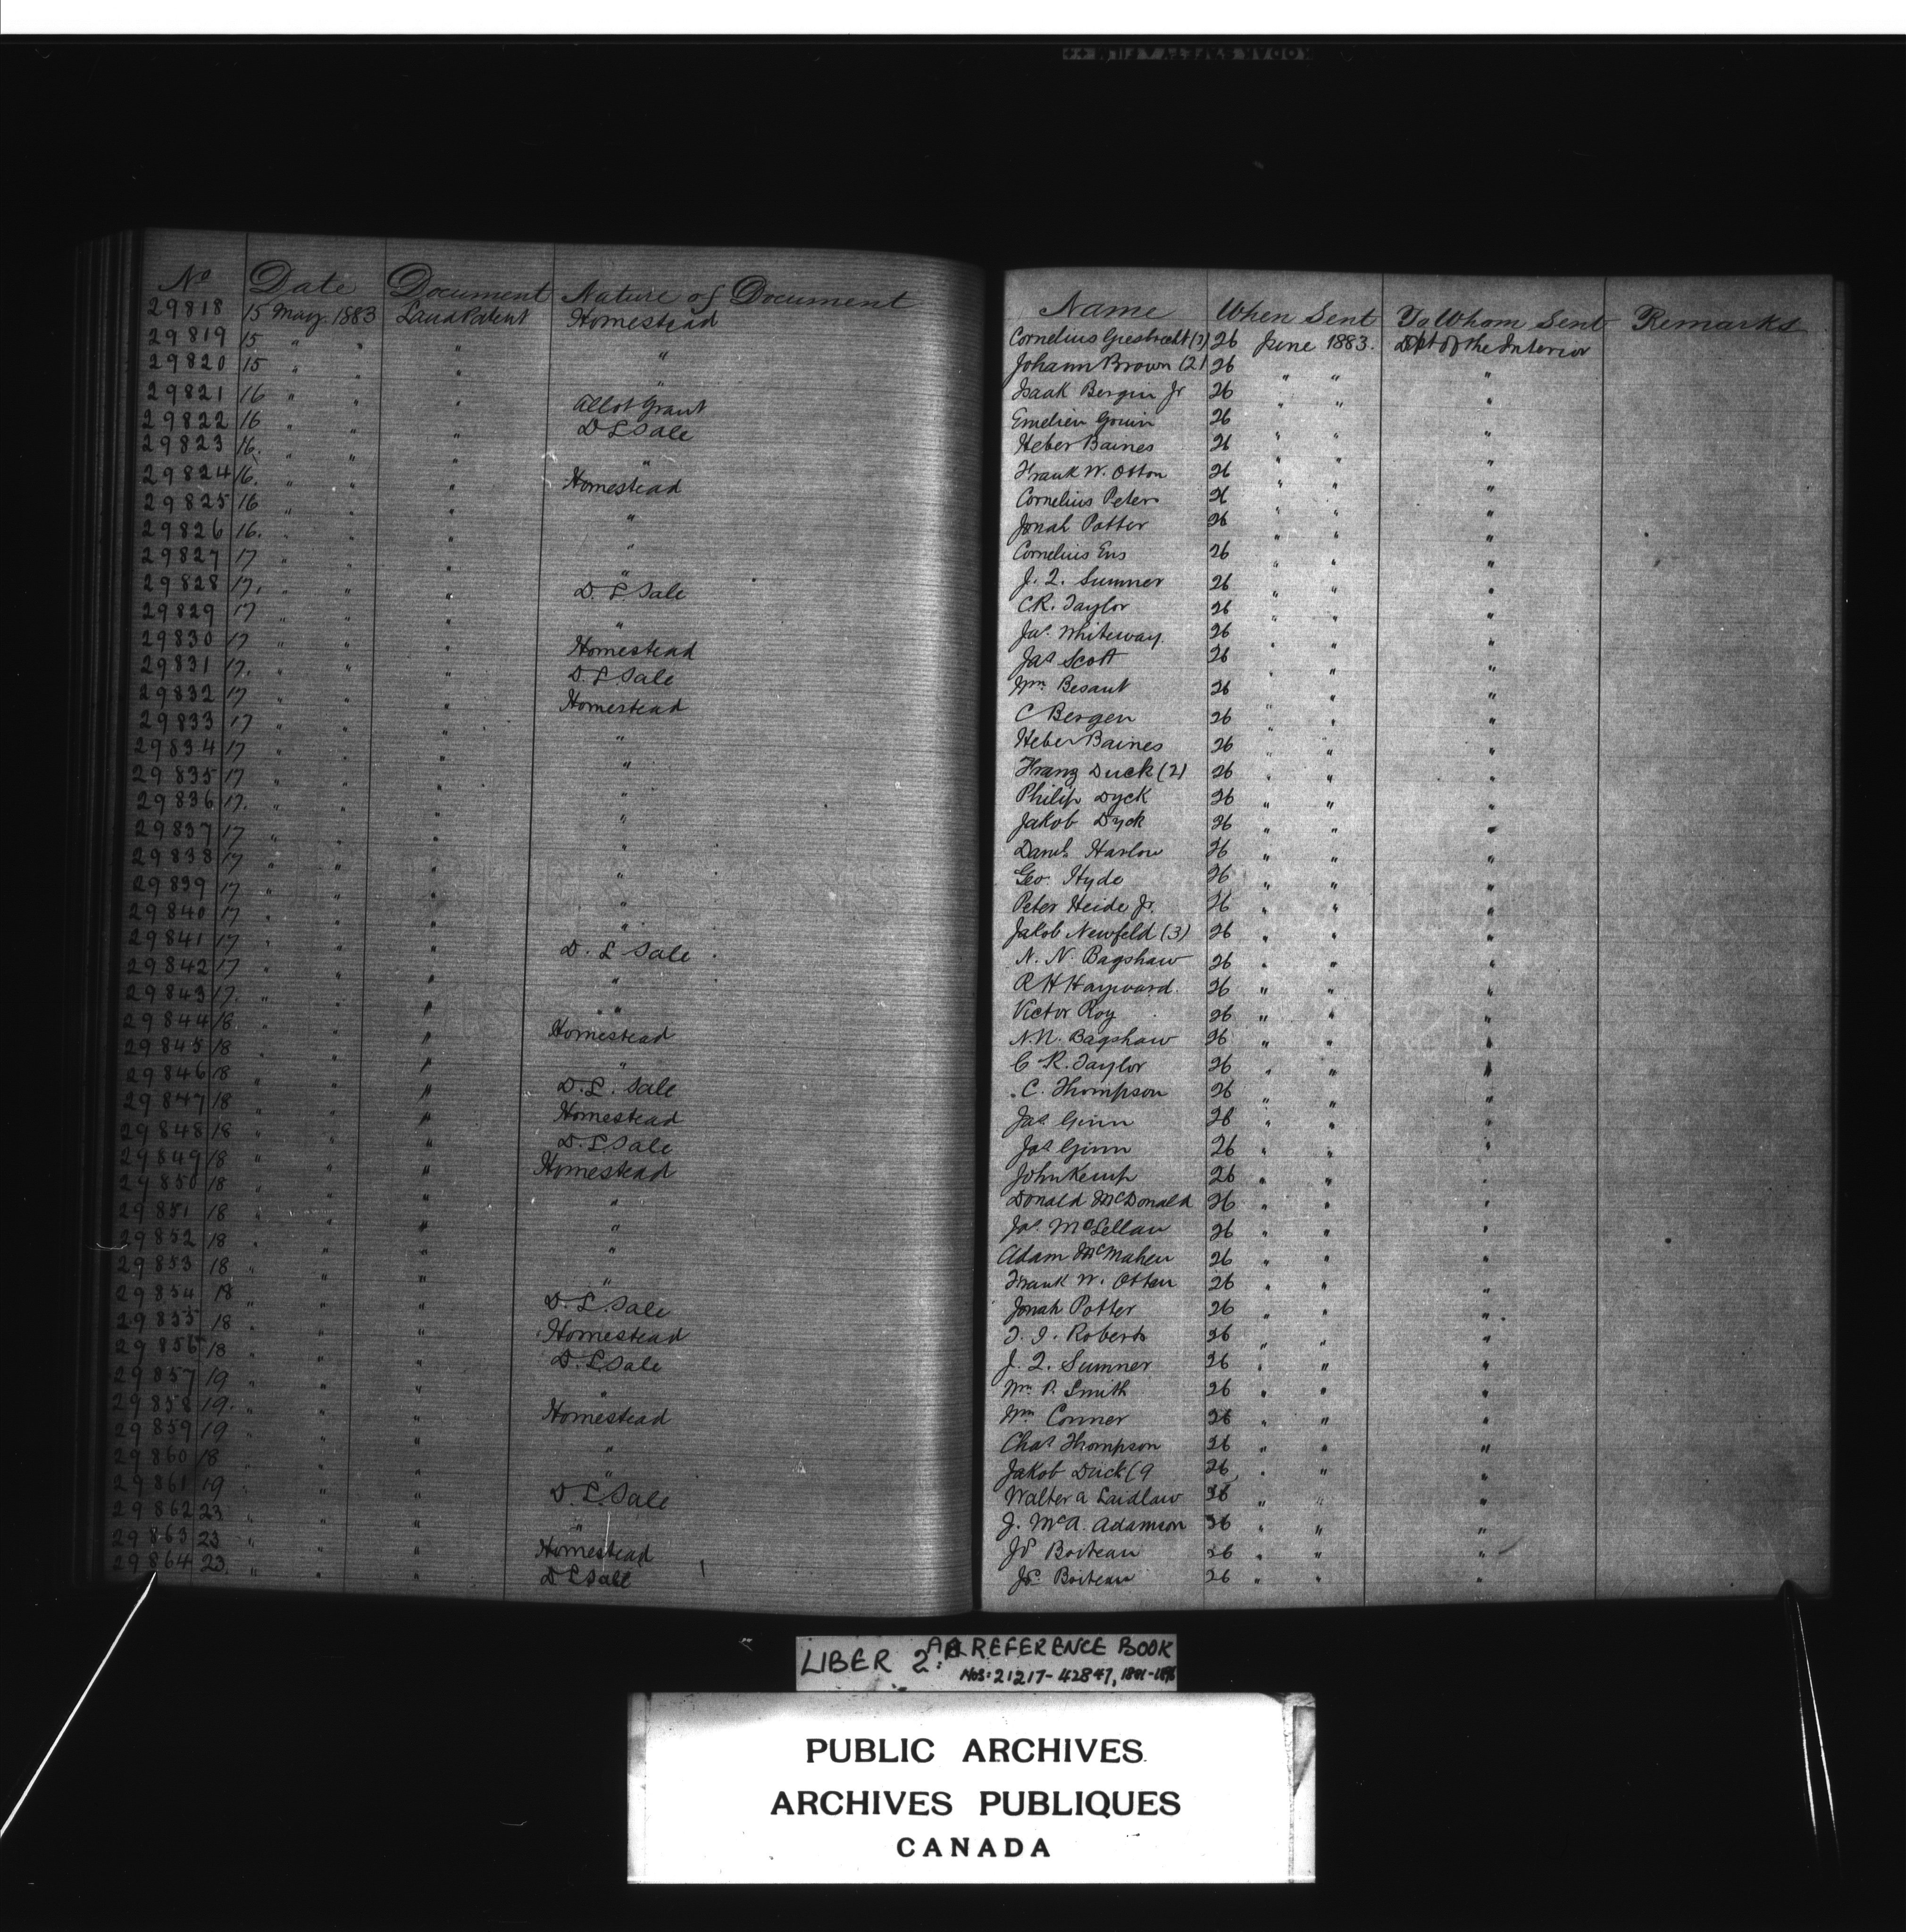 No Date Document Nature of Document
29818 15 May 1883 Land Patent Homestead
29819 15 " " " "
29820 15 " " " "
29821 16 " " " Allot Grant
29822 16 " " " D L Sale
29823 16. " " " "
29824 16. " " " Homestead
29825 16 " " " "
29826 16. " " " "
29827 17 " " " "
29828 17. " " " D. L Sale
29829 17 " " " "
29830 17 " " " Homestead
29831 17. " " " D. L. Sale
29832 17 " " " Homestead
29833 17 " " " "
29834 17 " " " "
29835 17 " " " "
29836 17. " " " "
29837 17 " " " "
29838 17 " " " "
29839 17 " " " "
29840 17 " " " "
29841 17 " " " D. L Sale
29842 17 " " " "
29843 17. " " " "
29844 18. " " " Homestead
29845 18 " " " "
29846 18 " " " D. L. Sale
29847 18 " " " Homestead
29848 18 " " " D. L. Sale
29849 18 " " " Homestead
29850 18 " " " "
29851 18 " " " "
29852 18 " " " "
29853 18 " " " "
29854 18 " " " D. L. Sale
29855 18 " " " Homestead
29856 18 " " " D. L. Sale
29857 19 " " " "
29858 19. " " " Homestead
29859 19 " " " "
29860 18 " " " "
29861 19 " " " D. L. Sale
29862 23 " " " "
29863 23 " " " Homestead
29864 23. " " " D L Sale
Name When Sent To Whom Sent Remarks
Cornelius Giesbrecht (3) 26 June 1883. Dept of the Interior
Johann Brown (2) 26 " " "
Isaak Bergin Jr 26 " " "
Emelien Gouin 26 " " "
Heber Baines 26 " " "
Frank W. Otton 26 " " "
Cornelius Peters 26 " " "
Jonah Potter 26 " " "
Cornelius Ens 26 " " "
J. Q. Sumner 26 " " "
C.R. Taylor 26 " " "
Jas. Whiteway. 26 " " "
Jas Scott 26 " " "
Wm Besant 26 " " "
C Bergen 26 " " "
Heber Baines 26 " " "
Franz Duck (2) 26 " " "
Philip Dyck 26 " " "
Jakob Dyck 26 " " "
Danl. Harlow 26 " " "
Geo. Hyde 26 " " "
Peter Heide Jr. 26 " " "
Jakob Newfeld (3) 26 " " "
N. N. Bagshaw 26 " " "
R H Hayward. 26 " " "
Victor Roy 26 " " "
N.N. Bagshaw 26 " " "
C R. Taylor 26 " " "
C. Thompson 26 " " "
Jas Ginn 26 " " "
Jas Ginn 26 " " "
John Kemp 26 " " "
Donald McDonald 26 " " "
Jas. McLellan 26 " " "
Adam McMahen 26 " " "
Frank W. Otten 26 " " "
Jonah Potter 26 " " "
T. J. Roberts 26 " " "
J. Q. Sumner 26 " " "
Wm P. Smith 26 " " "
Wm Conner 26 " " "
Chas Thompson 26 " " "
Jakob Duck (9 26 " " "
Walter A Laidlaw 26 " " "
J. McA. Adamson 26 " " "
Boiteau 26 " " "
Boiteau 26 " " "
LIBER 2: REFERENCE BOOK
Nos: 21217-42847,
PUBLIC ARCHIVES
ARCHIVES PUBLIQUES
CANADA